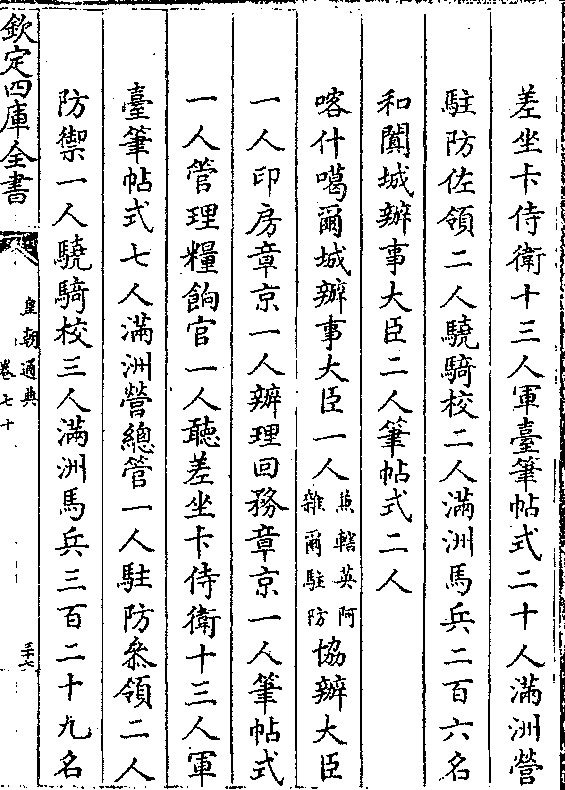 差坐卡侍衛十三人軍臺筆帖式二十人滿洲營
駐防佐領二人驍騎校二人滿洲馬兵二百六名
和闐城辦事大臣二人筆帖式二人
喀什噶爾城辦事大臣一人兼轄英阿雜爾駐防協辦大臣
一人印房章京一人辦理回務章京一人筆帖式
一人管理糧餉官一人聽差坐卡侍衛十三人軍
臺筆帖式七人滿洲營總管一人駐防叅領二人
防禦一人驍騎校三人滿洲馬兵三百二十九名
欽定四庫全書
皇朝通典
卷七十
三十七